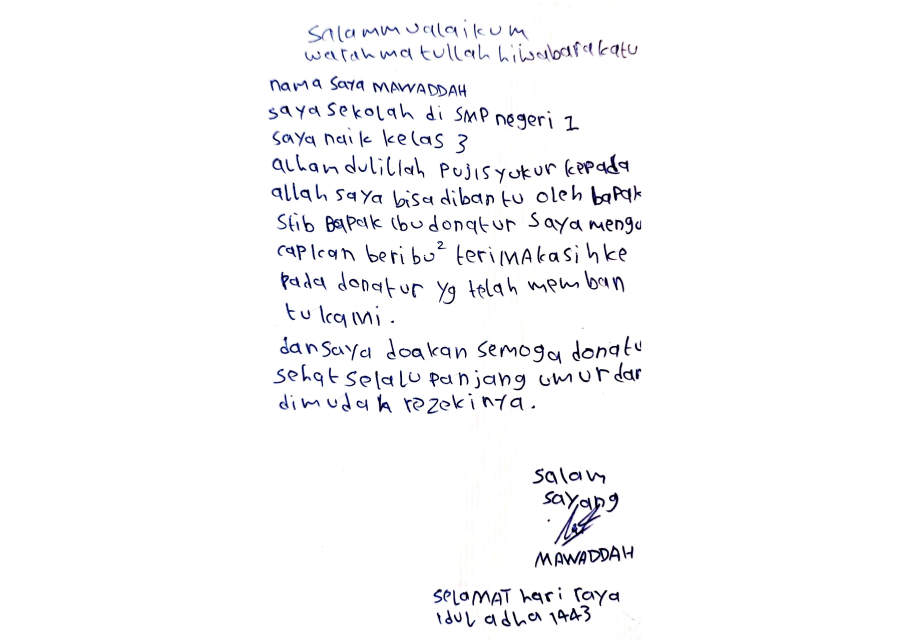 Salammualaikum
warahmatullahhiwabarakatu
nama saya MAWADDAH
saya sekolah di SMP negeri 1
saya naik kelas 3
alhamdulillah puji syukur kepada
allah saya bisa dibantu oleh bapak
Stib Bapak ibu donatur saya mengu
capkan beribu² terimakasih ke
pada donatur yg telah memban
tu kami.
dan saya doakan semoga donatu
sehat selalu panjang umur dan
dimudah rezekinya.
Salam
sayang
MAWADDAH
SELAMAT hari raya
idul adha 1443